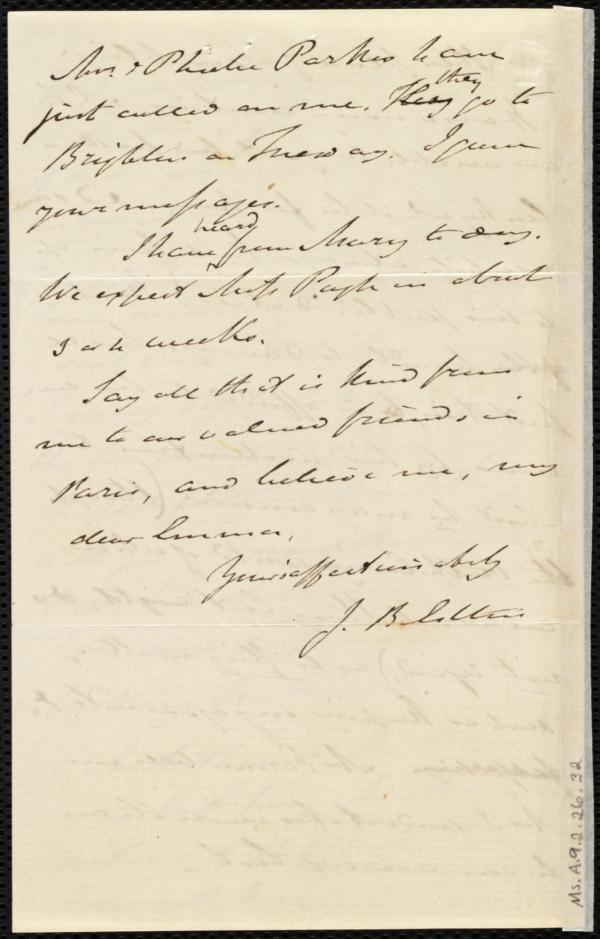 Mrs. & Phebe Parkes have
just called on me. They they go to
Brighton on Tuesday. I gave
your messages.
I have heard from Mary to day.
We expect Miss Pugh in about
3 or 4 weeks.
Say all that is kind from
me to our valued friends in
Paris, and believe me, my
dear Emma,
Yours affectionately
J. B. Estlin
Ms. A. 9. 2. 26. 32